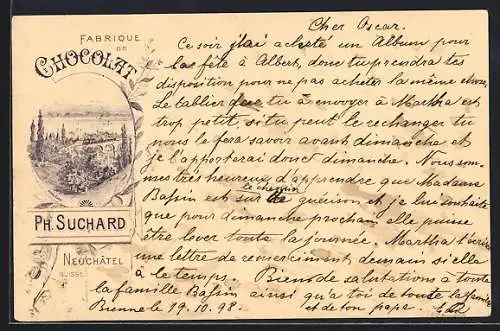 FABRIQUE
DE
CHOCOLAT
PH. SUCHARD
NEUCHÂTEL
SUISSE
Cher Oscar.
Ce soir j'ai acheté un Album pour
la fête à Albert, donc tu prendra tes
disposition pour ne pas acheter la même chose.
Le tablier que tu à envoyer à Martha est
trop petit, si tu peut le rechanger tu
nous le fera savoir avant dimanche et
je l'apporterai donc dimanche. Nous som-
mes très heureux d'apprendre que Madame
Bassin est sur le chemin de guérison et je lui souhaite
que pour dimanche prochain elle puisse
être lever toute la journée. Martha t'écrira
une lettre de remerciment demain si elle
à le temps. Bien de salutations à toute
la famille Bassin ainsi qu'a toi de toute la famille
Bienne le 19.10.98. et de ton papa.